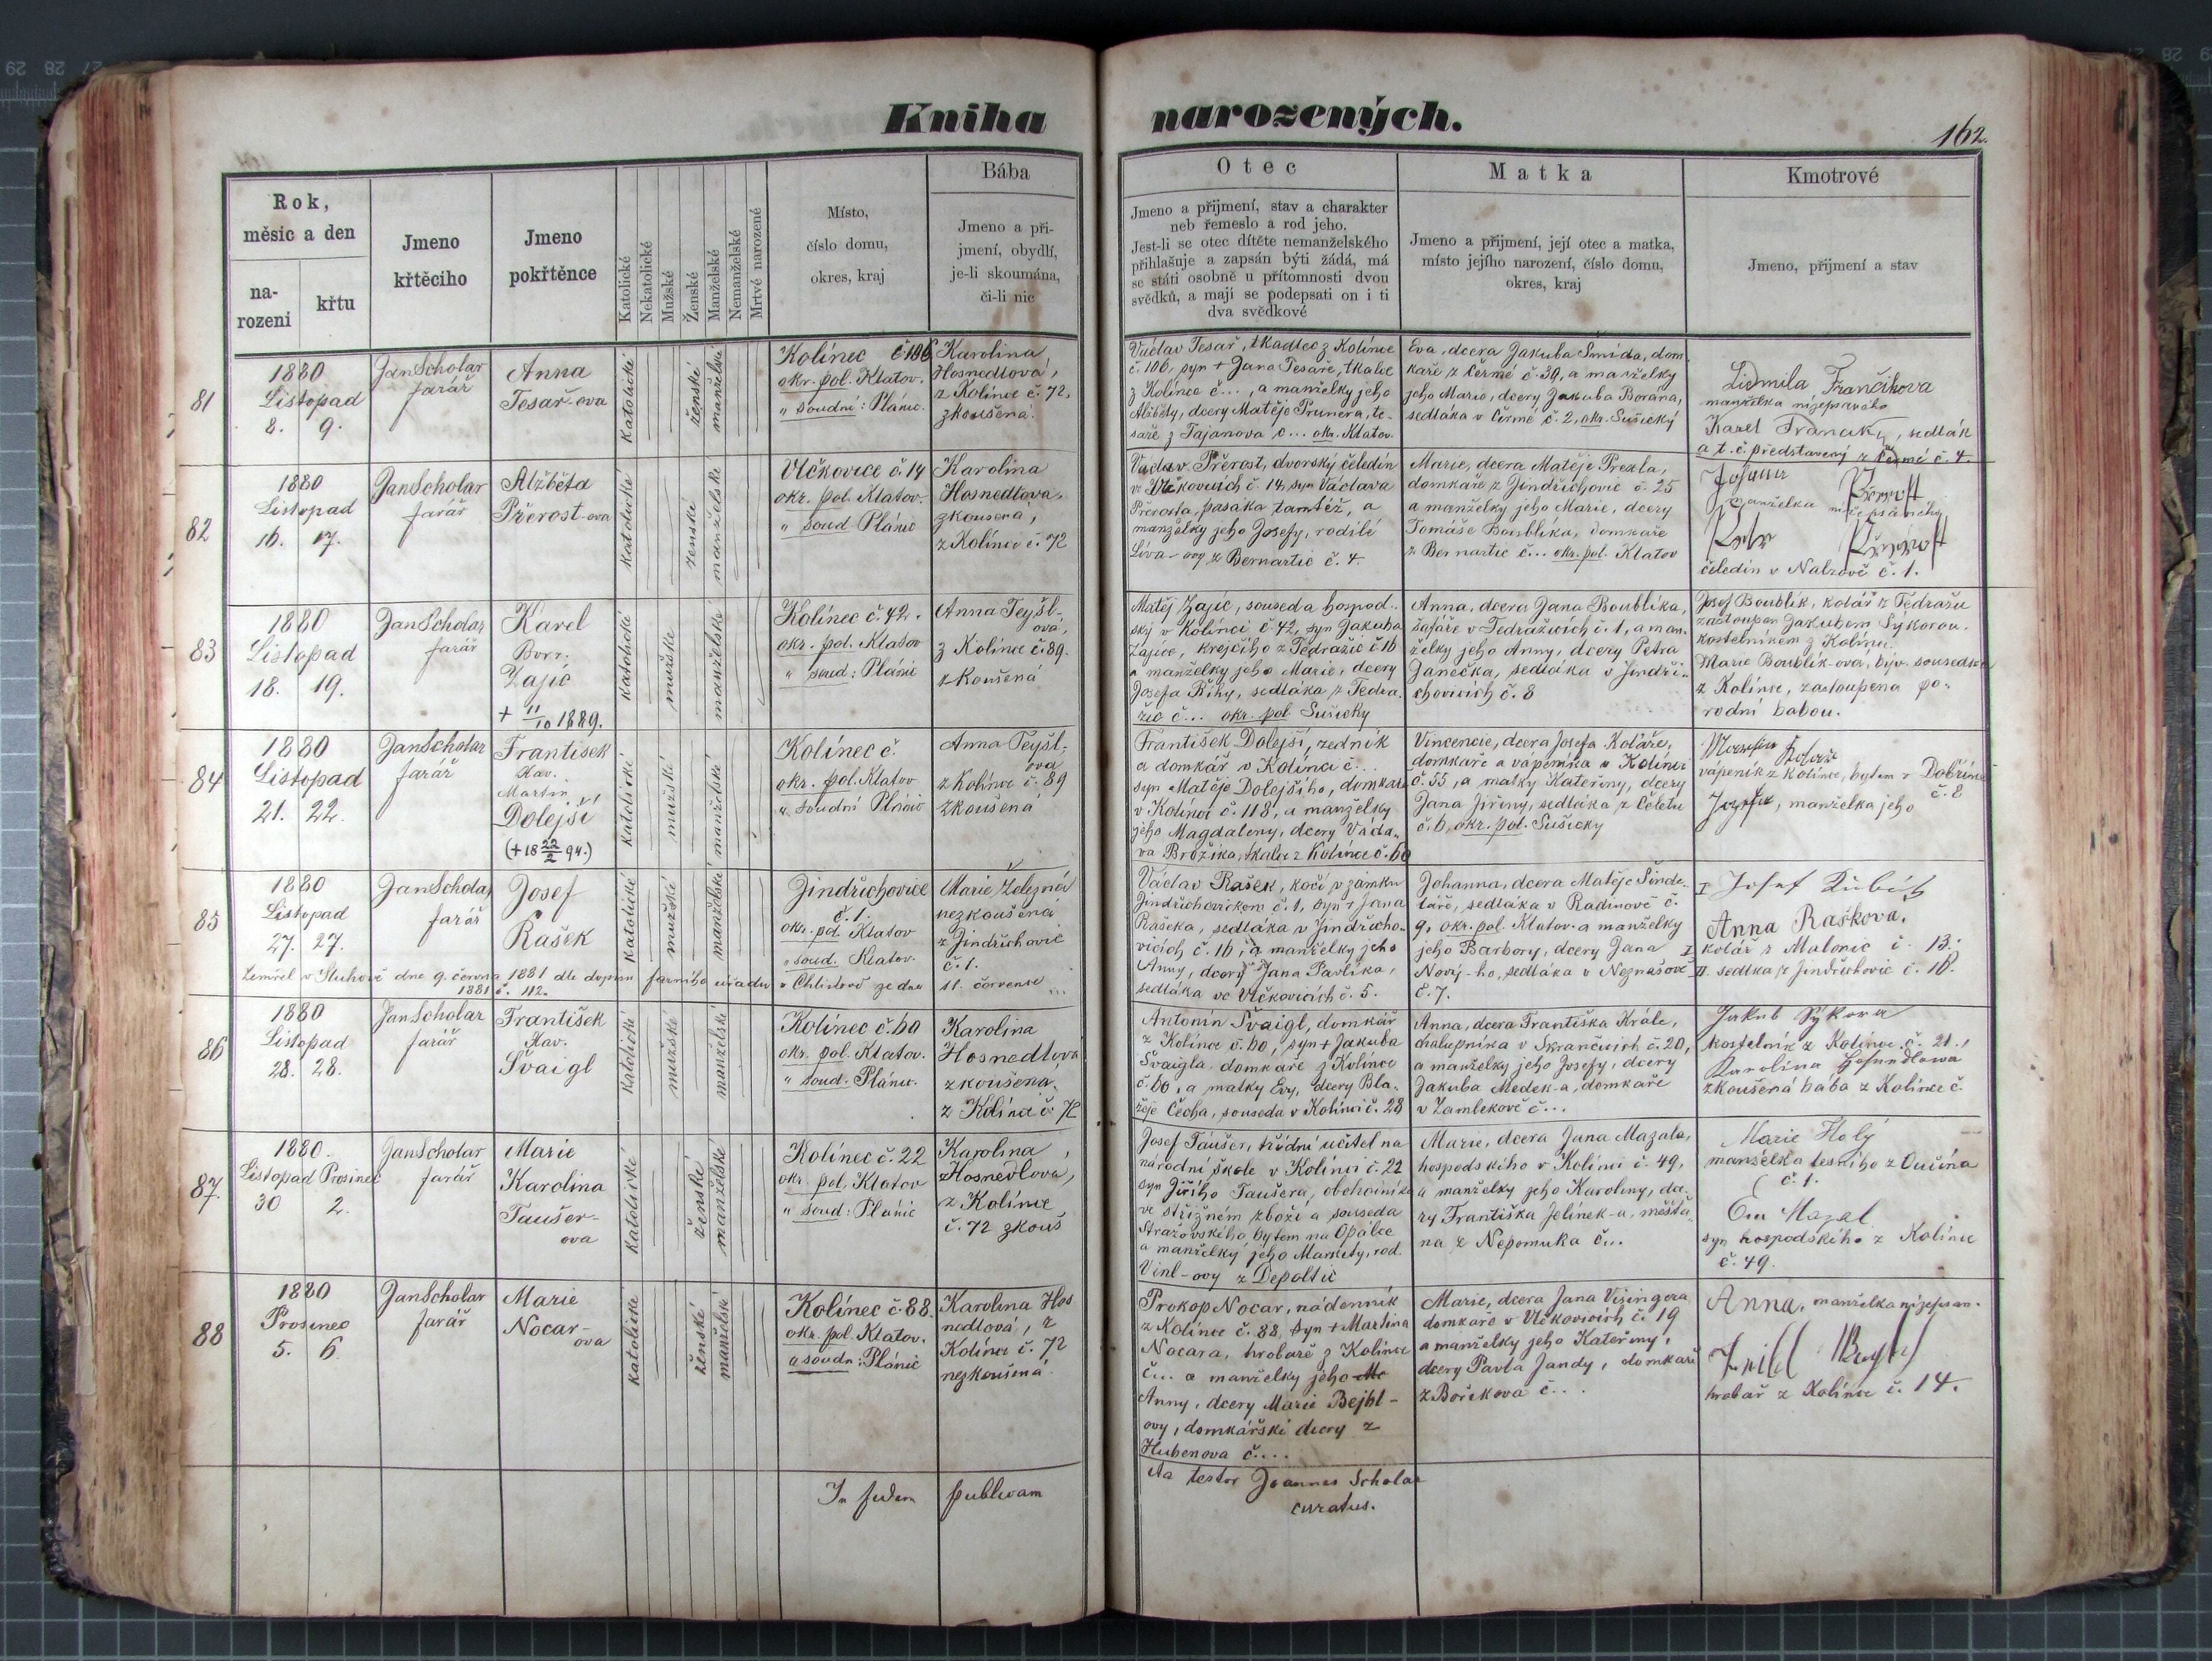 Kniha narozených.
162.
Rok,
měsíc a den
na-
rozeni
křtu
Jmeno
křtěcího
Jmeno
pokřtěnce
Katolické
Nekatolické
Mužské
Ženské
Manželské
Nemanželské
Mrtvé narozené
Místo,
číslo domu,
okres, kraj
Bába
Jmeno a při-
jmení, obydlí,
je-li skoumána,
či-li nic
Otec
Jmeno a přijmení, stav a charakter
neb řemeslo a rod jeho.
Jest-li se otec dítěte nemanželského
přihlašuje a zapsán býti žádá, má
se státi osobně u přítomnosti dvou
svědků, a mají se podepsati on i ti
dva svědkové
Matka
Jmeno a přijmení, její otec a matka,
místo jejího narození, číslo domu,
okres, kraj
Kmotrové
Jmeno, přijmení a stav
81
1880
Listopad
8. 9.
Jan Scholar
farář
Anna
Tesař-ova
katolické
ženské
manželské
Kolínec č. 106
okr. pol. Klatov.
" soudní: Plánic.
Karolina
Hosnedlova,
z Kolínce č. 72,
zkoušena.
Václav Tesař, tkadlec z Kolínce
č. 106, syn + Jana Tesaře, tkalce
z Kolínce č..., a manželky jeho
Alžběty, dcery Matěje Prunera, te-
saře z Tajanova č... okr. Klatov.
Eva, dcera Jakuba Šmída, dom
kaře z Čermé č. 39, a manželky
jeho Marie, dcery Jakuba Borana,
sedláka v Čermé č. 2, okr. Sušický
Lidmila Frančíkova
manželka nížepsaného
Karel , sedlák
a t. č. představený z Čermé č. 4.
82
1880
Listopad
16. 17.
Jan Scholar
farář
Alžběta
Přerost-ova
katolické
ženské
manželské
Vlčkovice č. 14
okr. pol. Klatov.
" soud Plánic
Karolina
Hosnedlova,
zkoušená,
z Kolínce č. 72
Václav Přerost, dvorský čeledín
ve Vlčkovicích č. 14, syn Václava
Přerosta, pasáka tamtéž, a
manželky jeho Josefy, rodilé
Líva-ovy z Bernartic č. 4.
Marie, dcera Matěje Prexla,
domkaře z Jindřichovic č. 25
a manželky jeho Marie, dcery
Tomáše Boublíka, domkaře
z Bernartic č... okr. pol. Klatov
manželka nížepsaného
čeledín v Nalzově č. 1.
83
1880
Listopad
18. 19.
Jan Scholar
farář
Karel
Borr.
Zajíc
+ 11/10 1889.
katolické
mužské
manželské
Kolínec č. 42.
okr. pol. Klatov
" soud: Plánic
Anna Teyšl-
ová,
z Kolínce č. 89.
zkoušená
Matěj Zajíc, soused a hospod-
ský v Kolínci č. 42, syn Jakuba
Zajíce, krejčího z Tedražic č. 16
a manželky jeho Marie, dcery
Josefa Říhy, sedláka z Tedra-
žic č... okr. pol. Sušicky
Anna, dcera Jana Boublíka,
šafáře v Tedražicích č. 1, a man-
želky jeho Anny, dcery Petra
Janečka, sedláka v Jindři-
chovicích č. 8
Josef Boublík, kolář z Tedražic
zastoupen Jakubem Sýkorou.
kostelníkem z Kolínce.
Marie Boublík-ová, býv. sousedka
z Kolínce, zastoupena po-
rodní babou.
84
1880
Listopad
21. 22.
Jan Scholar
farář
František
Xav.
Martin
Dolejší
(+ 18 22/2 94.)
katolické
mužské
manželské
Kolínec č.
okr. pol. Klatov
" soudní Plánic
Anna Teyšl-
ova
z Kolínce č. 89
zkoušená
František Dolejší, zedník
a domkář v Kolínci č...
syn Matěje Dolejšího, domkaře
v Kolínci č. 118, a manželky
jeho Magdaleny, dcery Václa-
va Brožíka, tkalce z Kolínce č. 60
Vincencie, dcera Josefa Koláře,
domkaře a vápeníka v Kolínci
č. 55, a matky Kateřiny, dcery
Jana Jiřiny, sedláka z Čeletic
č. 6, okr. pol. Sušicky
vápeník z Kolínce, bytem v Dobříně
č. 8
, manželka jeho
85
1880
Listopad
27. 27.
Jan Scholar
farář
Josef
Rašek
katolické
mužské
manželské
Jindřichovice
č. 1.
okr. pol. Klatov
" soud. Klatov.
Marie Železná
nezkoušená
z Jindřichovic
č. 1.
Zemřel v Sluhově dne 9. června 1881 dle dopisu farního úřadu v Chlistově ze dne 11. července
1881 č. 112.
Václav Rašek, kočí v zámku
Jindřichovickém č. 1, syn + Jana
Rašeka, sedláka v Jindřicho-
vicích č. 16, a manželky jeho
Anny, dcery Jana Pavlíka,
sedláka ve Vlčkovicích č. 5.
Johanna, dcera Matěje Šinde-
láře, sedláka v Radinově č.
9, okr. pol. Klatov a manželky
jeho Barbory, dcery Jana
Nový-ho, sedláka v Neznašově
č. 7.
I Josef
Anna Raškova.
I kolář z Malonic č. 13.
II. sedlka z Jindřichovic č. 16.
86
1880
Listopad
28. 28.
Jan Scholar
farář
František
Xav.
Švaigl
katolické
mužské
manželské
Kolínec č. 60
okr. pol. Klatov.
" soud. Plánic.
Karolina
Hosnedlová
zkoušená.
z Kolínce č. 72
Antonín Švaigl, domkář
z Kolínce č. 60, syn + Jakuba
Švaigla, domkaře z Kolínce
č. 60, a matky Evy, dcery Bla-
žeje Čecha, souseda v Kolínci č. 28
Anna, dcera Františka Krále,
chalupníka v Skrančicích č. 20,
a manželky jeho Josefy, dcery
Jakuba Medek-a, domkaře
v Zamlekově č...
Jakub Sýkora
kostelník z Kolínce č. 21.,
Karolina Hosnedlowa
zkoušená bába z Kolínce č.
87.
1880.
Listopad Prosinec
30 2.
Jan Scholar
farář
Marie
Karolina
Taušer-
ova
katolické
ženské
manželské
Kolínec č. 22
okr. pol. Klatov
" soud: Plánic
Karolina
Hosnedlova,
z Kolínce
č. 72 zkouš
Josef Taušer, třídní učitel na
národní škole v Kolínci č. 22
syn Jiřího Taušera, obchodníka
ve střižném zboží a souseda
Strážovského, bytem na Opálce
a manželky jeho Markéty, rod.
Vinl-ovy z Depoltic
Marie, dcera Jana Mazala,
hospodského v Kolínci č. 49,
a manželky jeho Karoliny, dce-
ry Františka Jelínek-a, měšťa-
na z Nepomuka č...
Marie Holý
manželka lesního z Oučína
č. 1.
Mazal
syn hospodského z Kolínce
č. 49.
88
1880
Prosinec
5. 6.
Jan Scholar
farář
Marie
Nocar-
ova
katolické
ženské
manželské
Kolínec č. 88.
okr. pol. Klatov.
a soudn: Plánic
Karolina Hos
nedlová, z
Kolínce č. 72
nezkoušená.
Prokop Nocar, nádenník
z Kolínce č. 88, syn + Martina
Nocara, hrobaře z Kolínce
č... a manželky jeho Ma
Anny, dcery Marie Bejbl-
ovy, domkářské dcery z
Hubenova č....
Marie, dcera Jana Višingera
domkáře v Vlčkovicích č. 19
a manželky jeho Kateřiny,
dcery Pavla Jandy, domkaře
z Boříkova č...
Anna, manželka nížepsan.
hrobař z Kolínce č. 14.
In fidem publicam
Joannes Scholar
curatus.